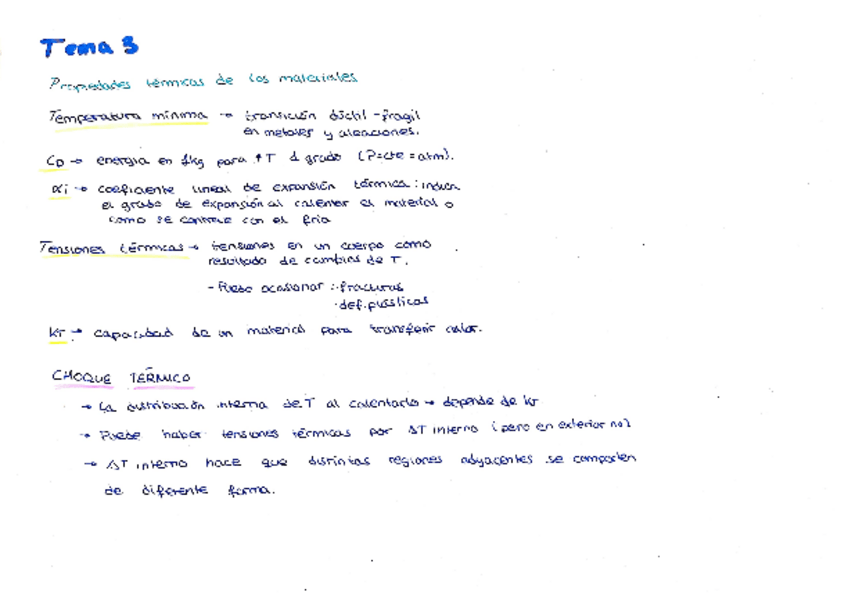 Tema 3
Propiedades térmicas de los materiales
Temperatura mínima → transición dúctil-frágil
en metales y aleaciones.
Cp → energía en 1kg para ↑T 1 grado (P=cte=atm).
αi → coeficiente lineal de expansión térmica: indica
el grado de expansión al calentar el material o
como se contrae con el frio
Tensiones térmicas → tensiones en un cuerpo como
resultado de cambios de T.
- Puede ocasionar: · fracturas
· def. plásticas
KT → capacidad de un material para transferir calor.
CHOQUE TÉRMICO
→ La distribución interna de T al calentarlo → depende de KT
→ Puede haber tensiones térmicas por ΔT interno (pero en exterior no)
→ ΔT interno hace que distintas regiones adyacentes se comporten
de diferente forma.